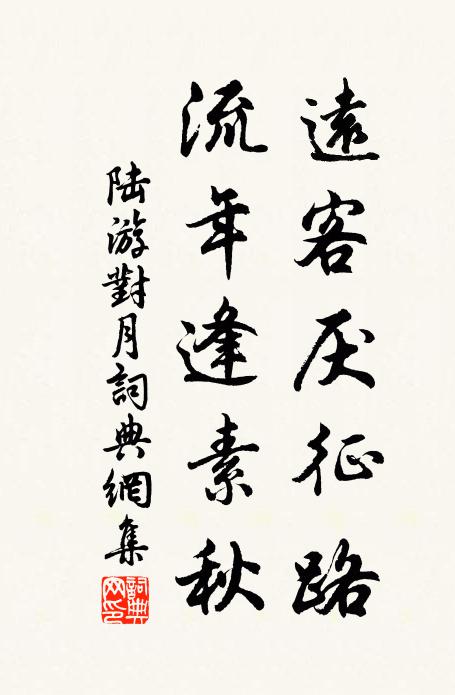 遠客厌征路
流年逢素秋
陆游對月詞典網集
詞典网印